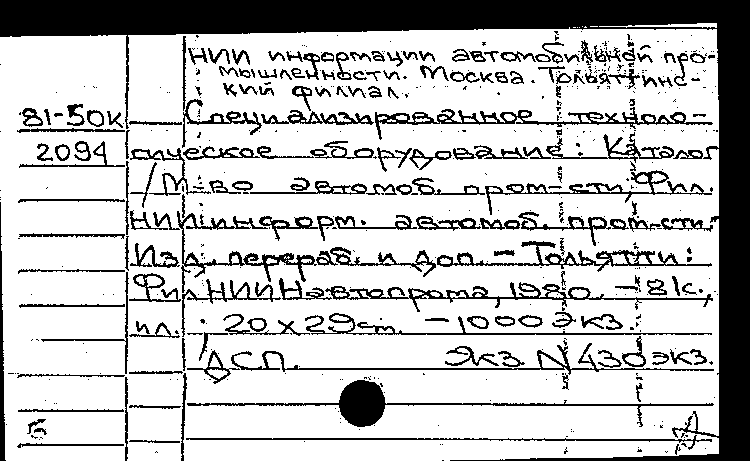 НИИ информации автомобильной про-
мышленности. Москва. Тольяттинс-
кий филиал.
81-50к Специализированное техноло-
2094 гическое оборудование: Каталог
/М-во автомоб. пром-сти; Фил.
НИИ информ. автомоб. пром-сти.-
Изд. перераб. и доп. - Тольятти:
Фил НИИНавтопрома, 1980. - 81с.,
ил.; 20 х 29 см. - 1000 экз.
ДСП. Экз. N 430 экз.
Б